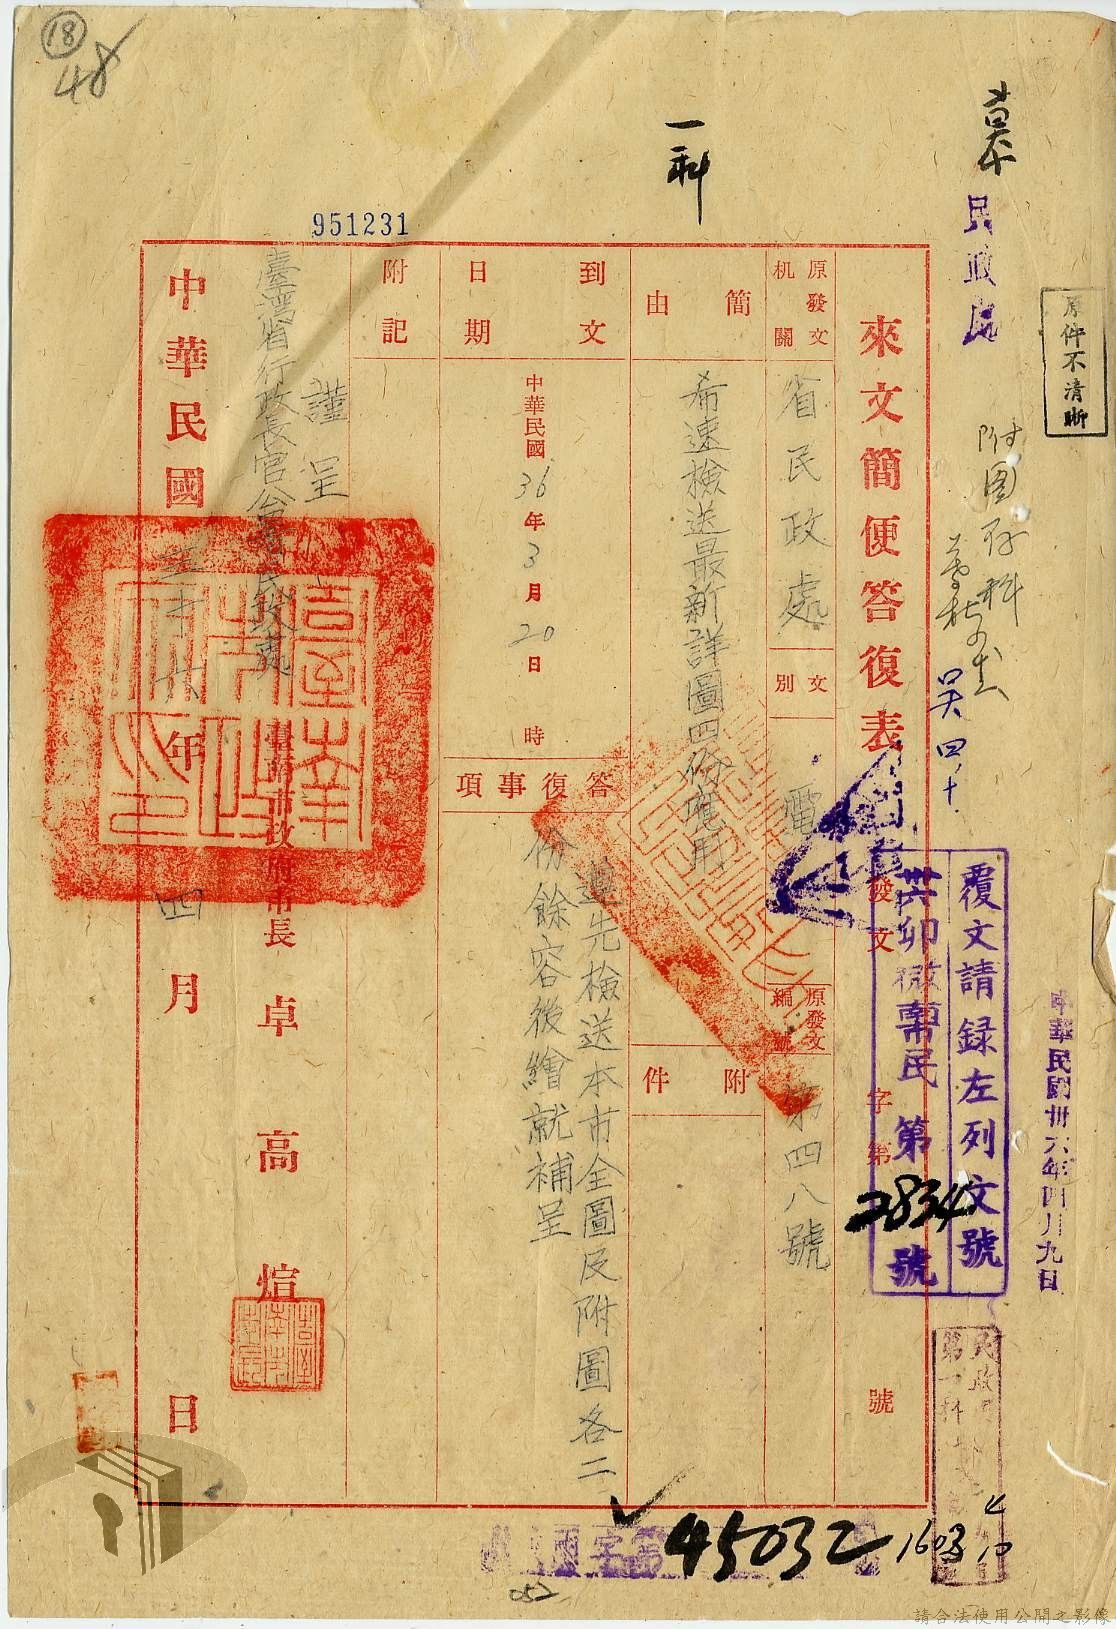 18
48
951231
一科
民政處
原件不清晰
附圖存科
吳 四、十
覆文請録左列文號
卅六卯 南民 第2834號
中華民國卅六年四月九日
來文簡便答復表
發文 字第 號
原發文机關
省民政處
文別
電
原發文編號
第四八號
簡由
希速檢送最新詳圖四份應用
附件
到文日期
中華民國36年3月20日 時
答復事項
遵先檢送本市全圖及附圖各二
份餘容後繪就補呈
附記
謹呈
臺灣省行政長官公署民政處
臺南市政府市長 卓高煊
中華民國三十六年四月 日
臺南市政府印
民政處
第一科
字第45032
1603
4/10
052
請合法使用公開之影像